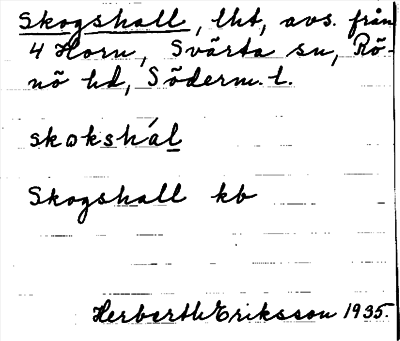 Skogshall, lht, avs. från
4 Horn, Svärta sn, Rö-
nö hd, Söderm. l.
skokshál
Skogshall kb
Herberth Eriksson 1935.